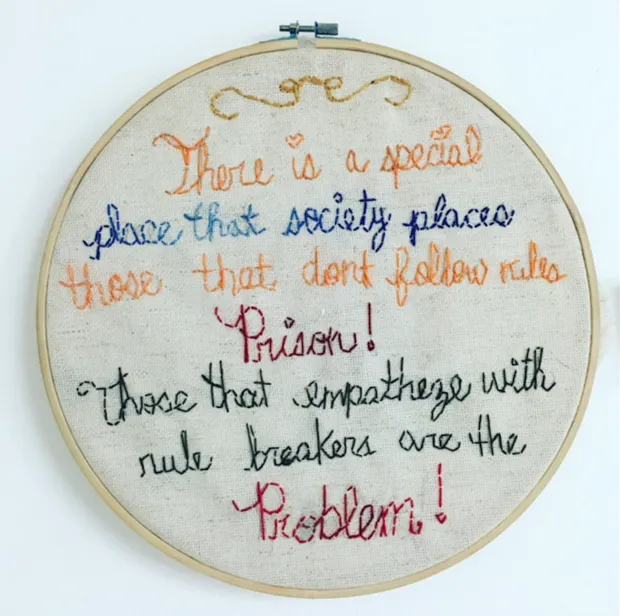 There is a special
place that society places
those that dont follow rules
Prison!
Those that empatheze with
rule breakers are the
Problem!